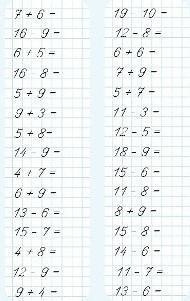 7 + 6 =
16 - 9 =
6 + 5 =
16 - 8 =
5 + 9 =
9 + 3 =
5 + 8 =
14 - 9 =
4 + 7 =
6 + 9 =
13 - 6 =
15 - 7 =
4 + 8 =
12 - 9 =
9 + 4 =
19 - 10 =
12 - 8 =
6 + 6 =
7 + 9 =
5 + 7 =
11 - 3 =
12 - 5 =
18 - 9 =
15 - 6 =
11 - 8 =
8 + 9 =
15 - 8 =
14 - 6 =
11 - 7 =
13 - 6 =